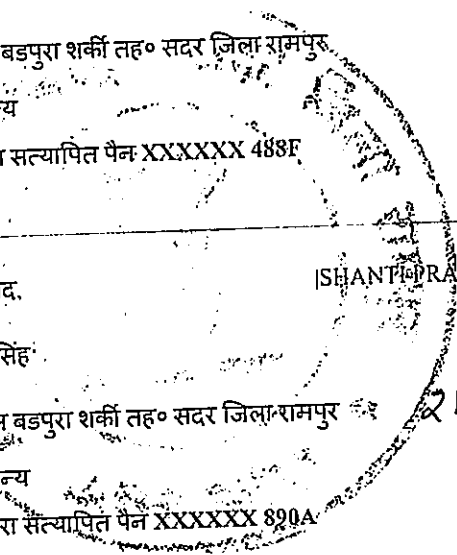 बडपुरा शर्की तह० सदर जिला रामपुर
न्य
सत्यापित पैन XXXXXX 488F
द,
|SHANTI PRA
सिंह
बडपुरा शर्की तह० सदर जिला रामपुर
न्य
रा सत्यापित पैन XXXXXX 890A